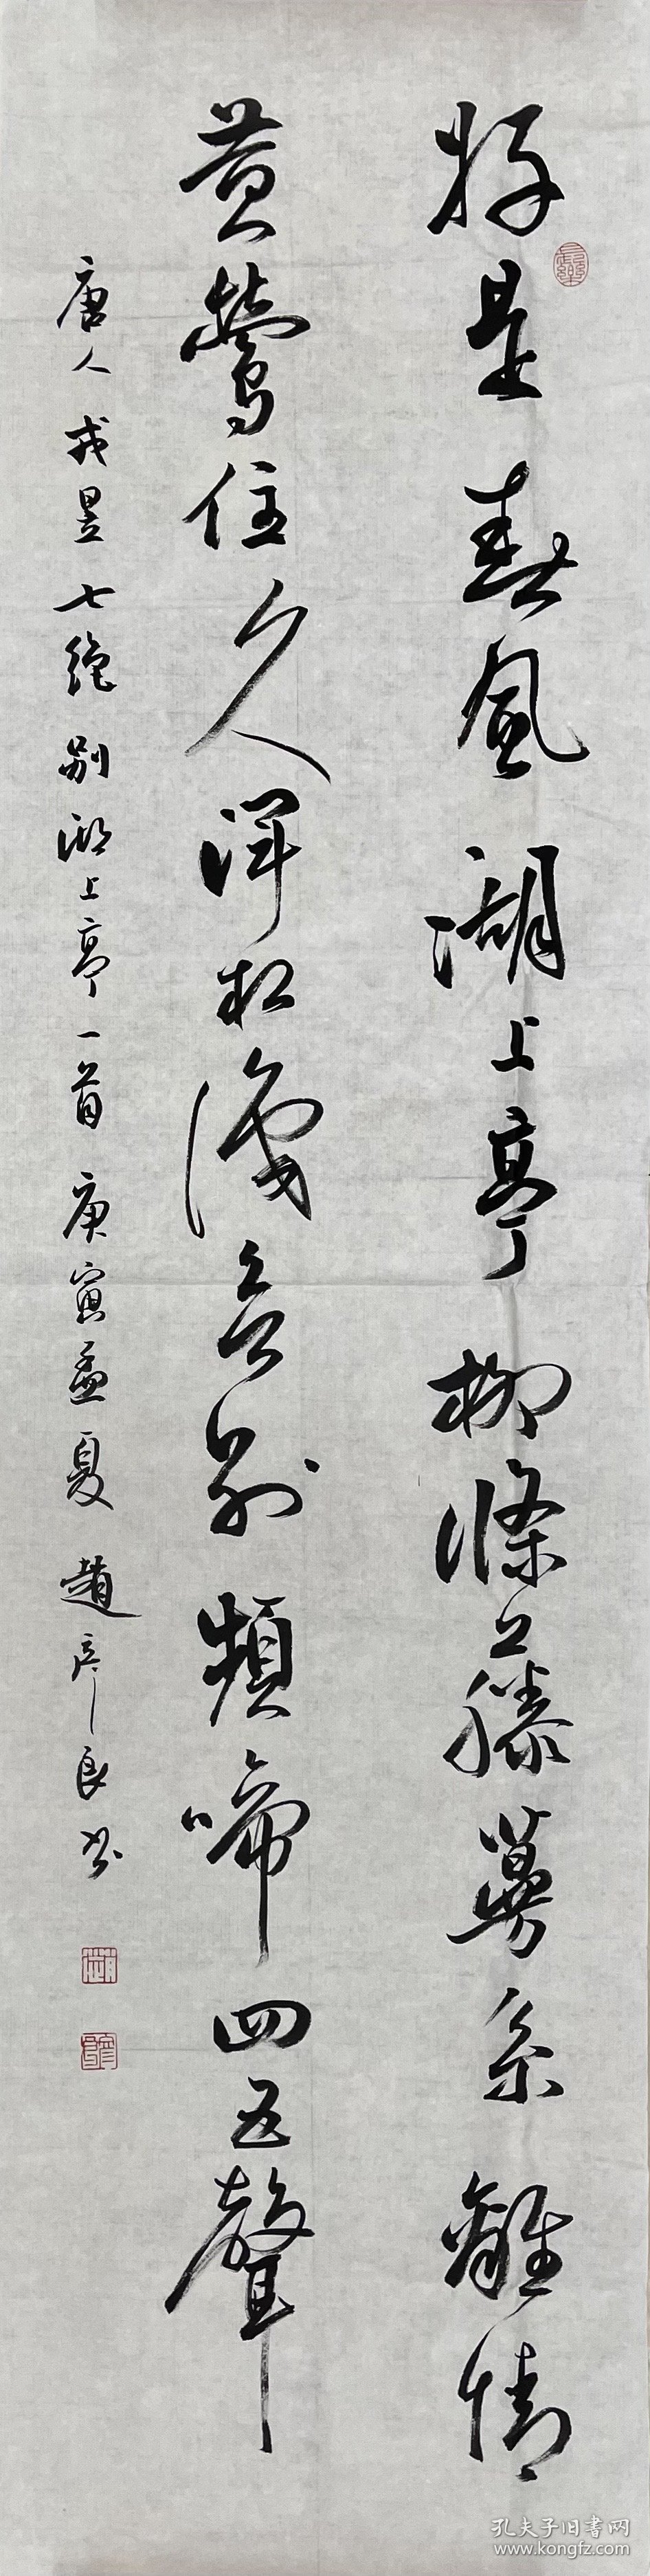 好是春風湖上亭柳條藤蔓系離情
黄鶯住久渾相識欲别頻啼四五聲
唐人戎昱七绝别湖上亭一首庚寅孟夏趙彦良书
孔夫子旧书网
www.kongfz.com